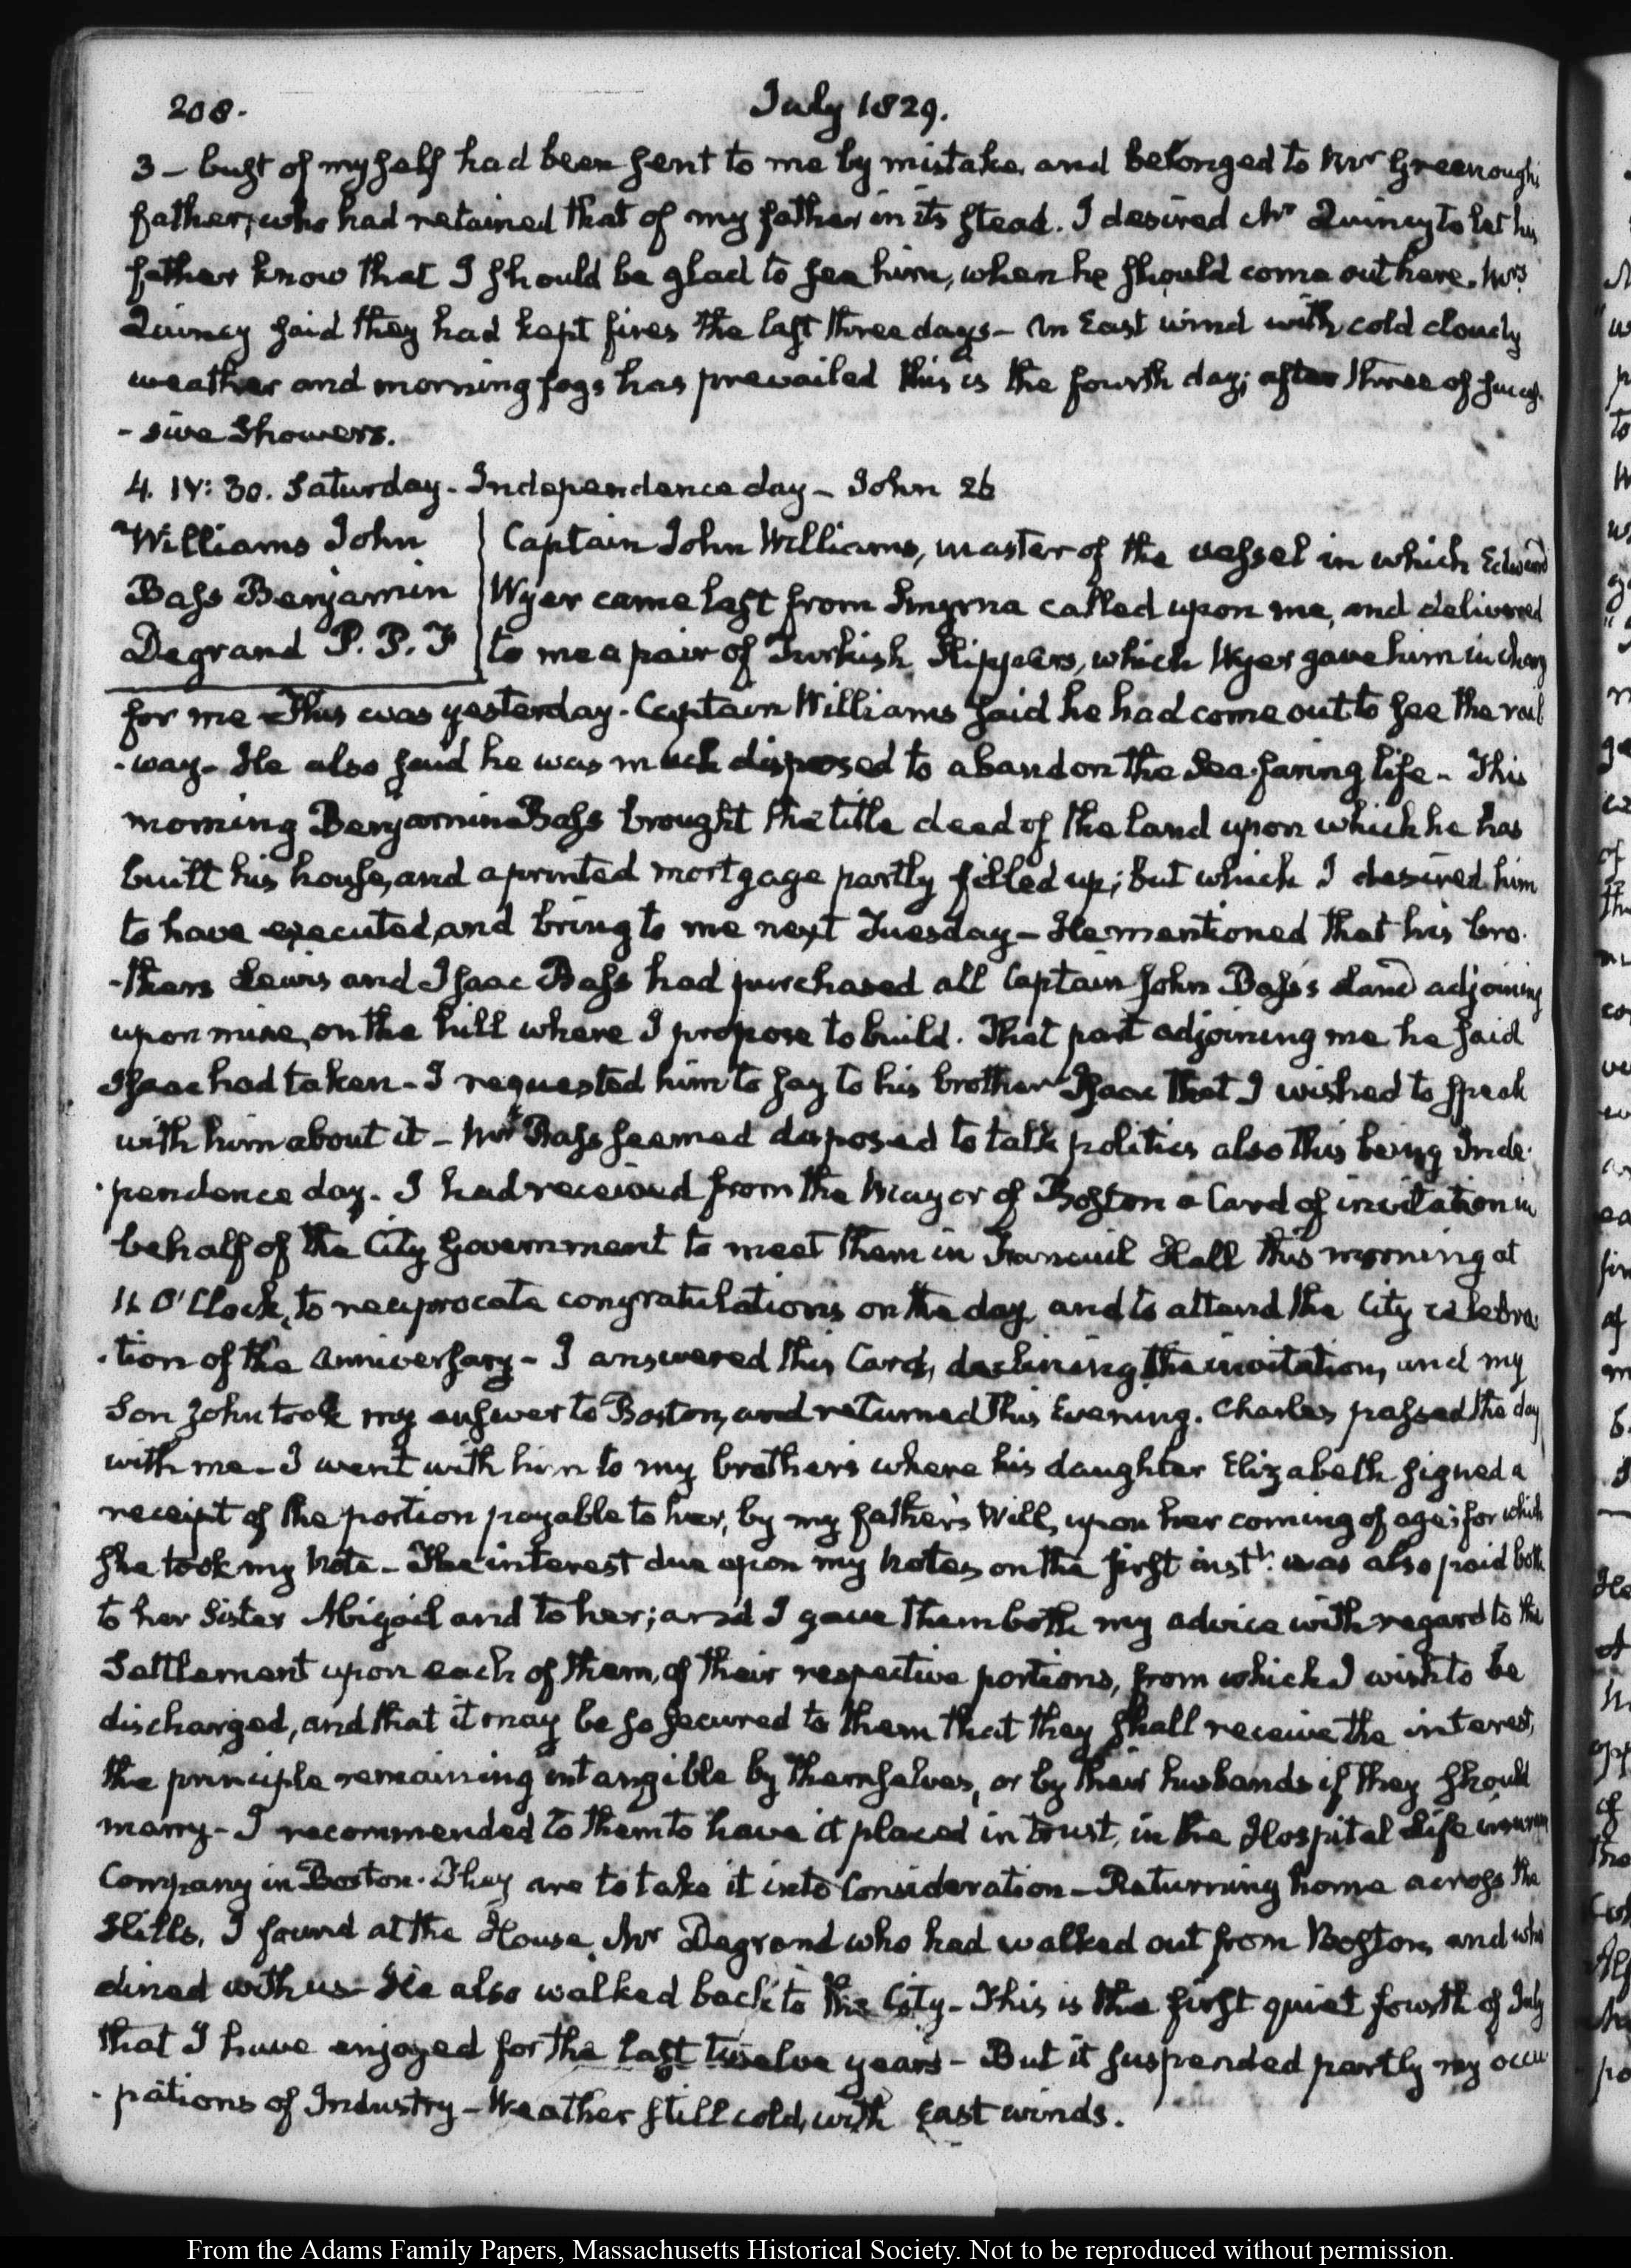 208.
July 1829.
3 – bust of myself had been sent to me by mistake, and belonged to Mr Greenough's
father, who had retained that of my father in its stead. I desired Mr Quincy to let his
father know that I should be glad to see him, when he should come out here. Mrs
Quincy said they had kept fires the last three days – An East wind with cold cloudy
weather and morning fogs has prevailed this is the fourth day; after three of succes
- sive Showers.
4. IV: 30. Saturday. Independence day – John 26
Williams John
Bass Benjamin
Degrand P. P. F
Captain John Williams, master of the vessel in which Edward
Wyer came last from Smyrna called upon me, and delivered
to me a pair of Turkish Slippers, which Wyer gave him in charge
for me – This was yesterday. Captain Williams said he had come out to see the rail
-way. He also said he was much disposed to abandon the Sea-faring life – This
morning Benjamin Bass brought the title deed of the land upon which he has
built his house, and a printed mortgage partly filled up; but which I desired him
to have executed, and bring to me next Tuesday – He mentioned that his bro-
-thers Lewis and Isaac Bass had purchased all Captain John Bass's land adjoining
upon mine, on the hill where I propose to build. That part adjoining me he said
Isaac had taken – I requested him to say to his brother Isaac that I wished to speak
with him about it – Mr Bass seemed disposed to talk politics also this being Inde-
-pendence day. I had received from the Mayor of Boston a Card of invitation in
behalf of the City Government to meet them in Faneuil Hall this morning at
11 O'Clock, to reciprocate congratulations on the day, and to attend the City celebra-
-tion of the Anniversary – I answered this Card, declining the invitation, and my
Son John took my answer to Boston, and returned this Evening. Charles passed the day
with me – I went with him to my brother's where his daughter Elizabeth signed a
receipt of the portion payable to her, by my father's Will, upon her coming of age; for which
she took my Note – The interest due upon my Notes on the first instt. was also paid both
to her Sister Abigail and to her; and I gave them both my advice with regard to the
Settlement upon each of them, of their respective portions, from which I wish to be
discharged, and that it may be so secured to them that they shall receive the interest,
the principle remaining intangible by themselves, or by their husbands if they should
marry – I recommended to them to have it placed in trust, in the Hospital Life insurance
Company in Boston. They are to take it into Consideration – Returning home across the
Hills, I found at the House, Mr Degrand who had walked out from Boston, and who
dined with us – He also walked back to the City – This is the first quiet fourth of July
that I have enjoyed for the last twelve years – But it suspended partly my occu
-pations of Industry – Weather still cold, with East winds.
From the Adams Family Papers, Massachusetts Historical Society. Not to be reproduced without permission.